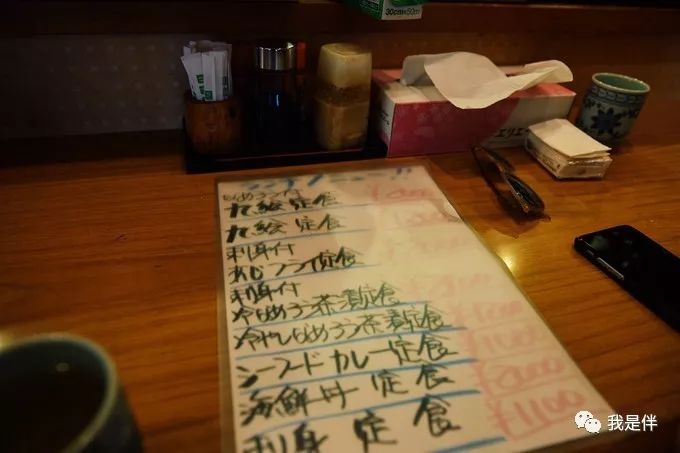 30cm×50cm
エリエ
ランチメニュー!!
なめろう付
九絵定食
九絵定食
刺身付
あじフライ定食
刺身付
冷なめろう茶漬定食
冷やしなめろう茶漬定食
シーフードカレー定食
海鮮丼 定食
刺身 定食 ¥1100
我是伴